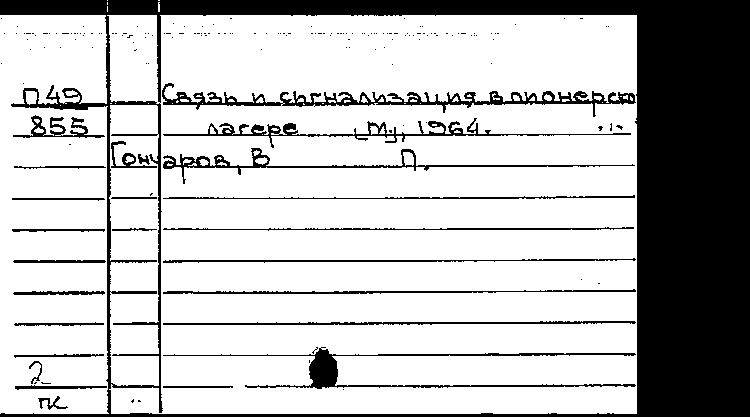 П49 Связь и сигнализация в пионерско
855 лагере [М], 1964.
Гончаров, В П.
2
ПК